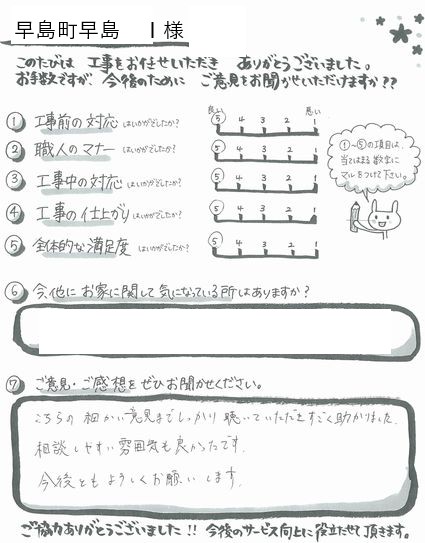 早島町早島 I 様
このたびは 工事をお任せいただき ありがとうございました。
お手数ですが、今後のために ご意見をお聞かせいただけますか??
良い 悪い
① 工事前の対応 はいかがでしたか? ⑤ 4 3 2 1
② 職人のマナー はいかがでしたか? ⑤ 4 3 2 1
③ 工事中の対応 はいかがでしたか? ⑤ 4 3 2 1
④ 工事の仕上がり はいかがでしたか? ⑤ 4 3 2 1
⑤ 全体的な満足度 はいかがでしたか? ⑤ 4 3 2 1
①~⑤の項目は、
当てはまる数字に
マルをつけて下さい。
⑥ 今、他に お家に関して 気になっている所はありますか?
⑦ ご意見・ご感想を ぜひお聞かせください。
こちらの細かい意見までしっかり聴いていただきすごく助かりました。
相談しやすい雰囲気も良かったです。
今後ともよろしくお願いします。
ご協力ありがとうございました!! 今後のサービス向上に役立たせて頂きます。